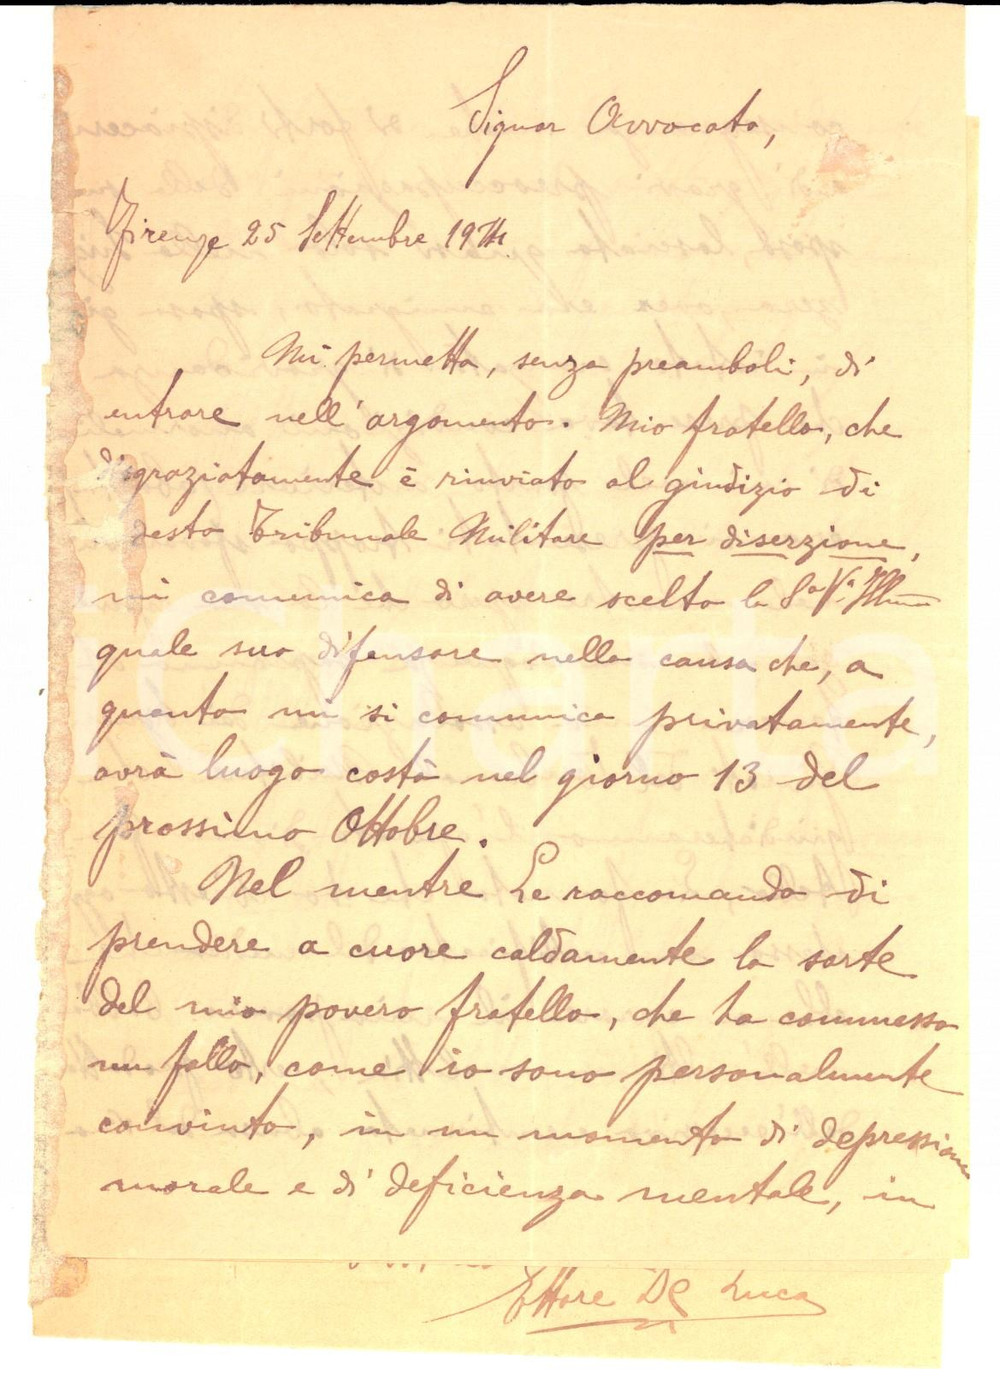 Signor Avvocato,
Firenze 25 Settembre 19
Mi permetta, senza preamboli, di
entrare nell'argomento. Mio fratello, che
disgraziatamente è rinviato al giudizio di
desto Tribunale Militare per diserzione,
mi comunica di avere scelto la S.a V.a Ill.ma
quale suo difensore nella causa che, a
quanto mi si comunica privatamente,
avrà luogo costà nel giorno 13 del
prossimo Ottobre.
Nel mentre Le raccomando di
prendere a cuore caldamente la sorte
del mio povero fratello, che ha commesso
un fallo, come io sono personalmente
convinto, in un momento di depressione
morale e di deficienza mentale, in
Ettore De Luca